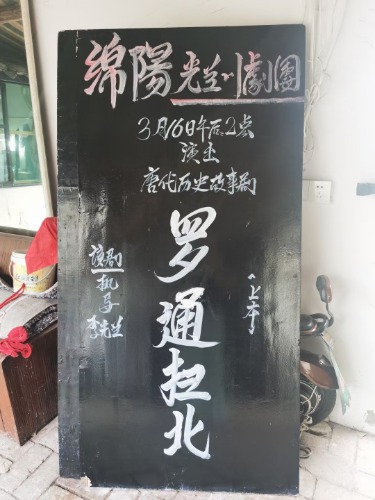 綿陽光兰川劇團
3月16日午后2点
演出
唐代历史故事剧
罗通扫北
《上本》
該剧
执导
李先兰